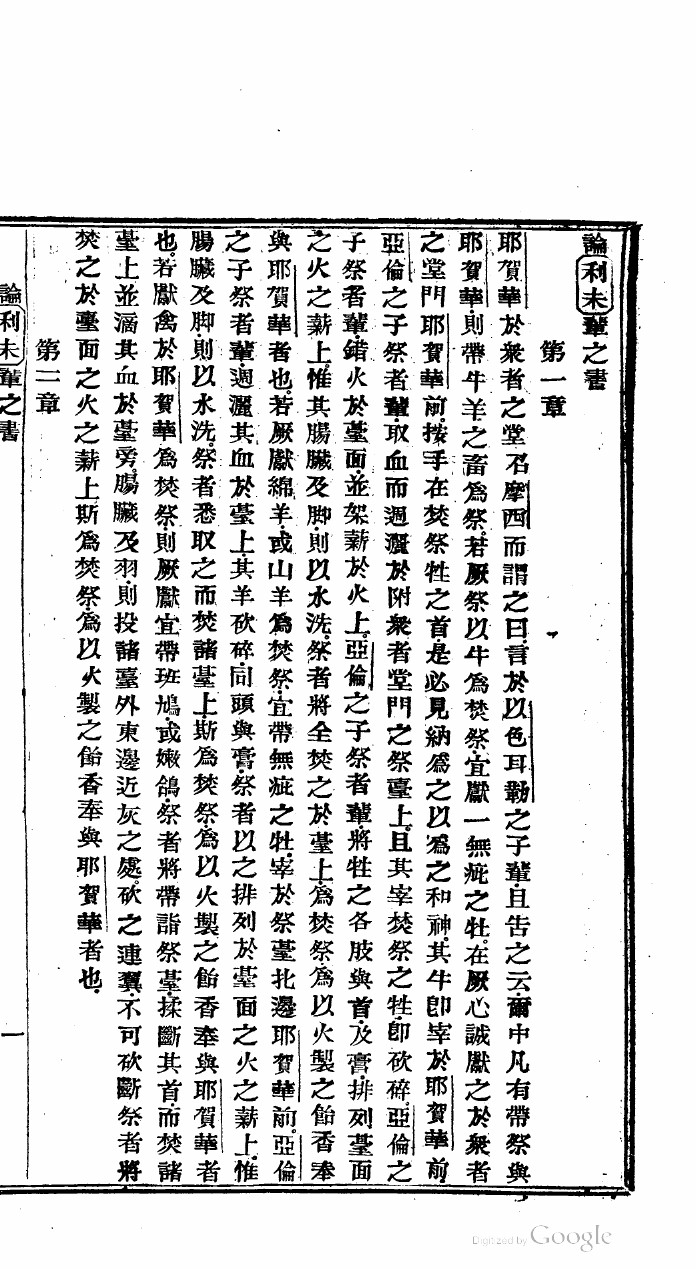 論利未輩之書
第一章
耶賀華於衆者之堂召摩西而謂之曰言於以色耳勒之子輩且告之云爾中凡有帶祭與
耶賀華則帶牛羊之畜為祭若厥祭以牛為焚祭宜獻一無疵之牡在厥心誠獻之於衆者
之堂門耶賀華前按手在焚祭牲之首是必見納為之以為之和神其牛卽宰於耶賀華前
亞倫之子祭者輩取血而週灑於附衆者堂門之祭臺上且其宰焚祭之牲卽砍碎亞倫之
子祭者輩錯火於臺面並架薪於火上亞倫之子祭者輩將牲之各肢與首及膏排列臺面
之火之薪上惟其腸臟及脚則以水洗祭者將全焚之於臺上為焚祭為以火製之飴香奉
與耶賀華者也若厥獻綿羊或山羊為焚祭宜帶無疵之牡宰於祭臺北邊耶賀華前亞倫
之子祭者輩週灑其血於臺上其羊砍碎同頭與膏祭者以之排列於臺面之火之薪上惟
腸臟及脚則以水洗祭者悉取之而焚諸臺上斯為焚祭為以火製之飴香奉與耶賀華者
也若獻禽於耶賀華為焚祭則厥獻宜帶班鳩或嫩鴿祭者將帶詣祭臺揉斷其首而焚諸
臺上並滴其血於臺旁腸臟及羽則投諸臺外東邊近灰之處砍之連翼不可砍斷祭者將
焚之於臺面之火之薪上斯為焚祭為以火製之飴香奉與耶賀華者也
第二章
論利未輩之書
一
Digitized by Google